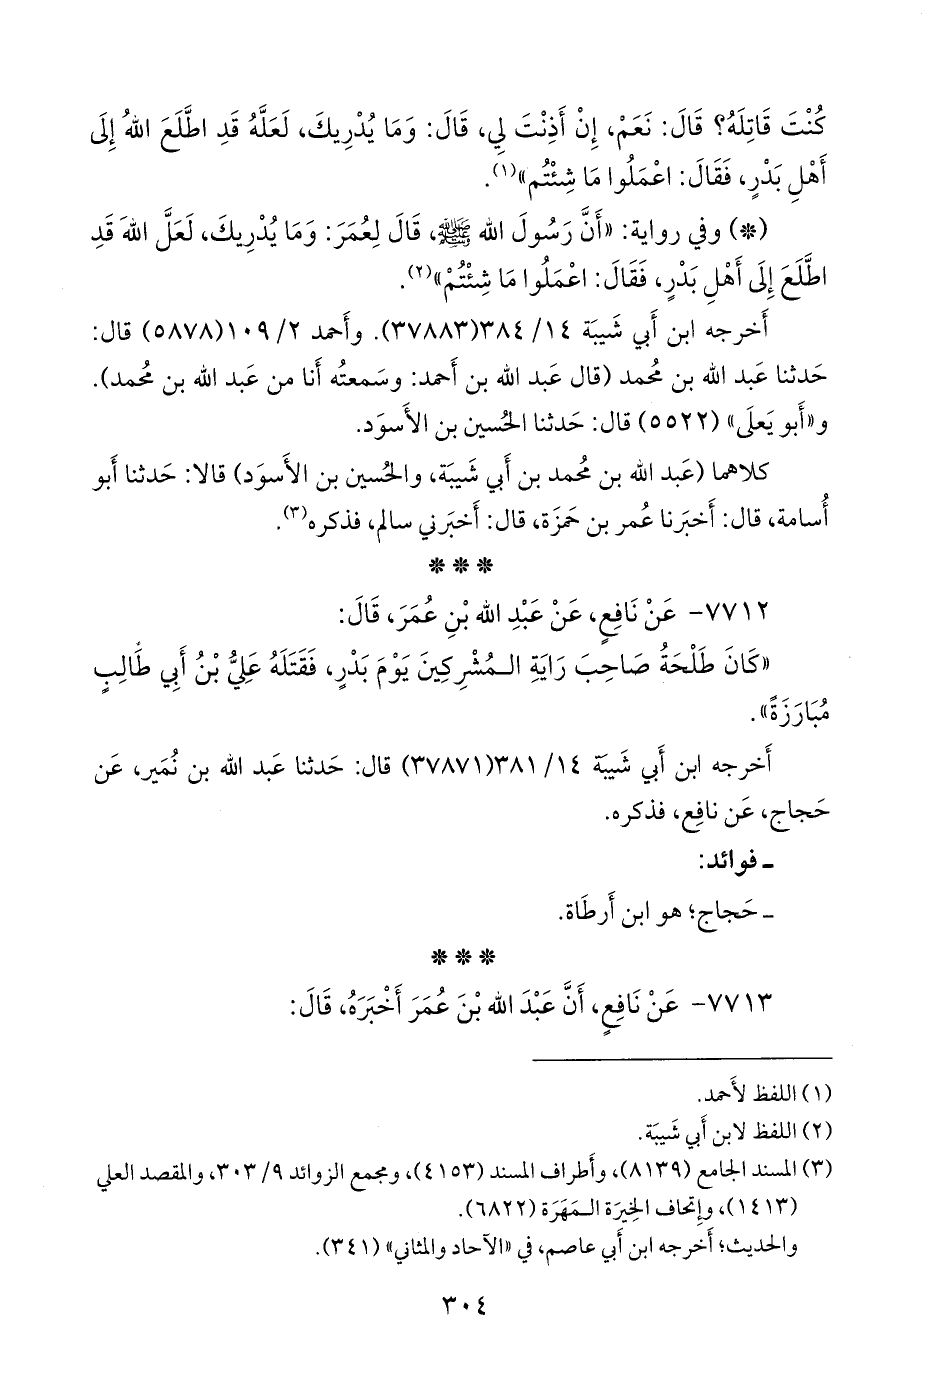 كُنْتَ قَاتِلَهُ؟ قَالَ: نَعَمْ، إِنْ أَذِنْتَ لِي، قَالَ: وَمَا يُدْرِيكَ، لَعَلَّهُ قَدِ اطَّلَعَ اللهُ إِلَى
أَهْلِ بَدْرٍ، فَقَالَ: اعْمَلُوا مَا شِئْتُم»(١).
(*) وفي رواية: «أَنَّ رَسُولَ الله ﷺ، قَالَ لِعُمَرَ: وَمَا يُدْرِيكَ، لَعَلَّ اللهَ قَدِ
اطَّلَعَ إِلَى أَهْلِ بَدْرٍ، فَقَالَ: اعْمَلُوا مَا شِئْتُمْ»(٢).
أَخرجه ابن أَبي شَيبَة ١٤/ ٣٨٤(٣٧٨٨٣). وأَحمد ٢/ ١٠٩(٥٨٧٨) قال:
حَدثنا عَبد الله بن مُحمد (قال عَبد الله بن أَحمد: وسَمعتُه أَنا من عَبد الله بن مُحمد).
و«أَبو يَعلَى» (٥٥٢٢) قال: حَدثنا الحُسين بن الأَسوَد.
كلاهما (عَبد الله بن مُحمد بن أَبي شَيبَة، والحُسين بن الأَسوَد) قالا: حَدثنا أَبو
أُسامة، قال: أَخبَرنا عُمر بن حَمزَة، قال: أَخبَرني سالم، فذكره(٣).
* * *
٧٧١٢- عَنْ نَافِعٍ، عَنْ عَبْدِ الله بْنِ عُمَرَ، قَالَ:
«كَانَ طَلْحَةُ صَاحِبَ رَايَةِ الـمُشْرِكِينَ يَوْمَ بَدْرٍ، فَقَتَلَهُ عَلِيُّ بْنُ أَبِي طَالِبٍ
مُبَارَزَةً».
أَخرجه ابن أَبي شَيبَة ١٤/ ٣٨١(٣٧٨٧١) قال: حَدثنا عَبد الله بن نُمَير، عَن
حَجاج، عَن نافِع، فذكره.
ـ فوائد:
ـ حَجاج؛ هو ابن أَرطَاة.
* * *
٧٧١٣- عَنْ نَافِعٍ، أَنَّ عَبْدَ الله بْنَ عُمَرَ أَخْبَرَهُ، قَالَ:
(١) اللفظ لأَحمد.
(٢) اللفظ لابن أَبي شَيبَة.
(٣) المسند الجامع (٨١٣٩)، وأَطراف المسند (٤١٥٣)، ومجمع الزوائد ٩/ ٣٠٣، والمقصد العلي
(١٤١٣)، وإتحاف الخِيرَة الـمَهَرَة (٦٨٢٢).
والحديث؛ أَخرجه ابن أَبي عاصم، في «الآحاد والمثاني» (٣٤١).
٣٠٤